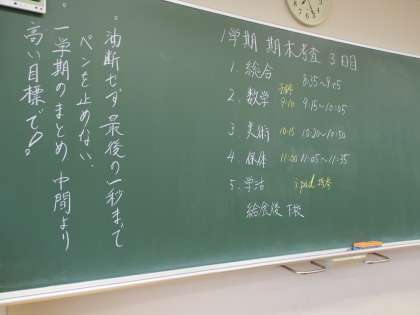 ・油断せず最後の一秒まで
ペンを止めない。
・一学期のまとめ 中間より
高い目標で!
1学期 期末考査 3日目
1. 総合 8:55~9:05
2. 数学 9:10 9:15~10:05
3. 美術 10:15 10:20~10:50
4. 保体 11:00 11:05~11:35
5. 学活 ipad
給食後 下校